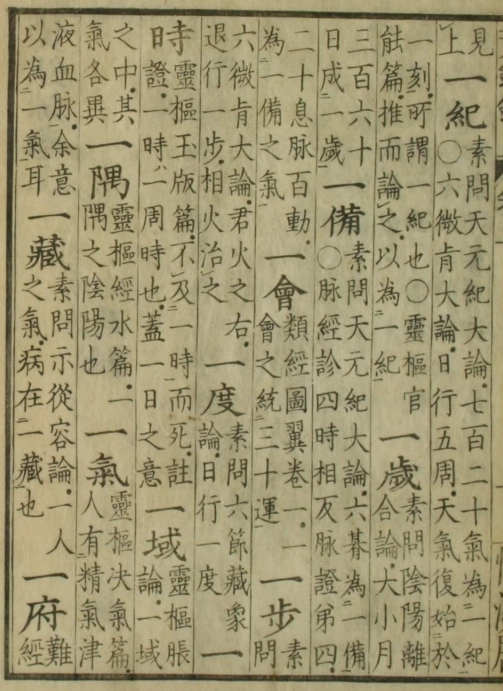 見上一紀素問天元紀大論七百二十氣為一紀○六微肯大論日行五周天氣復始於
一刻所謂一紀也○靈樞官能篇推而論之以為一紀一歲素問陰陽離合論大小月
三百六十日成一歲一備素問天元紀大論六朞為一備○脉經診四時相反脉證第四
二十息脉百動為一備之氣一會類經圖翼卷一一會之統三十運一步素問
六微肯大論君火之右退行一步相火治之一度素問六節藏象論日行一度一
時靈樞玉版篇不及一時而死註證一時一周時也蓋一日之意一域靈樞脹論一域
之中其氣各異一隅靈樞經水篇一隅之陰陽也一氣靈樞決氣篇人有精氣津
液血脉余意以為一氣耳一藏素問示從容論一人之氣病在一藏也一府難經